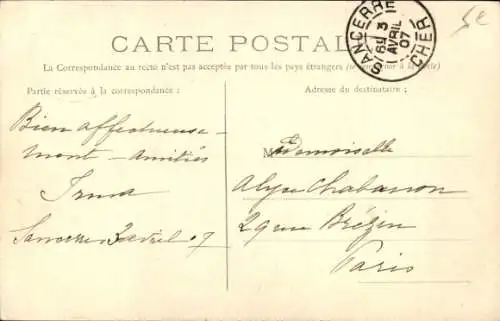 CARTE POSTALE
SANCERRE
CHER
3
AVRIL
07
5€
La Correspondance au recto n'est pas acceptée par tous les pays étrangers (se à la Poste)
Partie réservée à la correspondance :
Adresse du destinataire :
Bien affectueuse-
ment - Amitiés
Irma
Sancerre 3 avril 07
Mademoiselle
Chabanon
29 rue Brézin
Paris